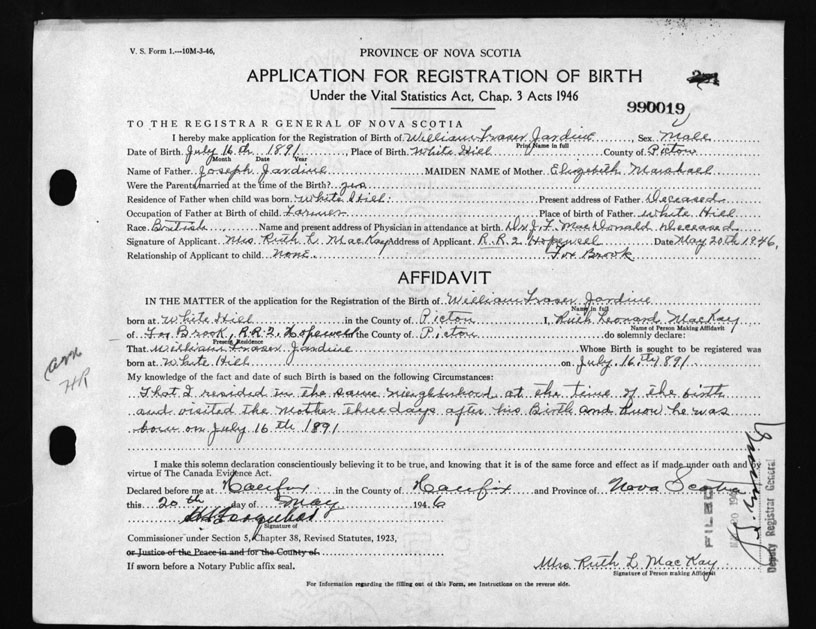 V. S. Form 1.—10M-3-46.
PROVINCE OF NOVA SCOTIA
APPLICATION FOR REGISTRATION OF BIRTH
Under the Vital Statistics Act, Chap. 3 Acts 1946
990019
TO THE REGISTRAR GENERAL OF NOVA SCOTIA
I hereby make application for the Registration of Birth of William Fraser Jardine, Sex Male
Print Name in full
Date of Birth July 16th 1891, Place of Birth White Hill County of Pictou
Month Date Year
Name of Father Joseph Jardine MAIDEN NAME of Mother Elizabeth Marshall
Were the Parents married at the time of the Birth? yes
Residence of Father when child was born White Hill Present address of Father Deceased
Occupation of Father at Birth of child Farmer Place of birth of Father White Hill
Race British Name and present address of Physician in attendance at birth Dr J. F. MacDonald Deceased
Signature of Applicant Mrs Ruth L MacKay Address of Applicant R.R.2 Hopewell Date May 20th 1946.
Relationship of Applicant to child none. Fox Brook
AFFIDAVIT
IN THE MATTER of the application for the Registration of Birth of William Fraser Jardine
Name in full
born at White Hill in the County of Pictou I, Ruth Leonard MacKay
Name of Person Making Affidavit
of Fox Brook, R.R.2, Hopewell the County of Pictou do solemnly declare:
Present Residence
That William Fraser Jardine Whose Birth is sought to be registered was
born at White Hill on July 16th 1891
My knowledge of the fact and date of such Birth is based on the following Circumstances:
That I resided in the same neighbourhood at the time of the birth
and visited the Mother three days after his Birth and know he was
born on July 16th 1891
I make this solemn declaration conscientiously believing it to be true, and knowing that it is of the same force and effect as if made under oath and by
virtue of The Canada Evidence Act.
Declared before me at Halifax in the County of Halifax and Province of Nova Scotia
this 20th day of May 1946
Signature of
Commissioner under Section 5, Chapter 38, Revised Statutes, 1923,
or Justice of the Peace in and for the County of
If sworn before a Notary Public affix seal.
Mrs Ruth L MacKay
Signature of Person making Affidavit
FILED
Deputy Registrar General
For Information regarding the filling out of this Form, see Instructions on the reverse side.